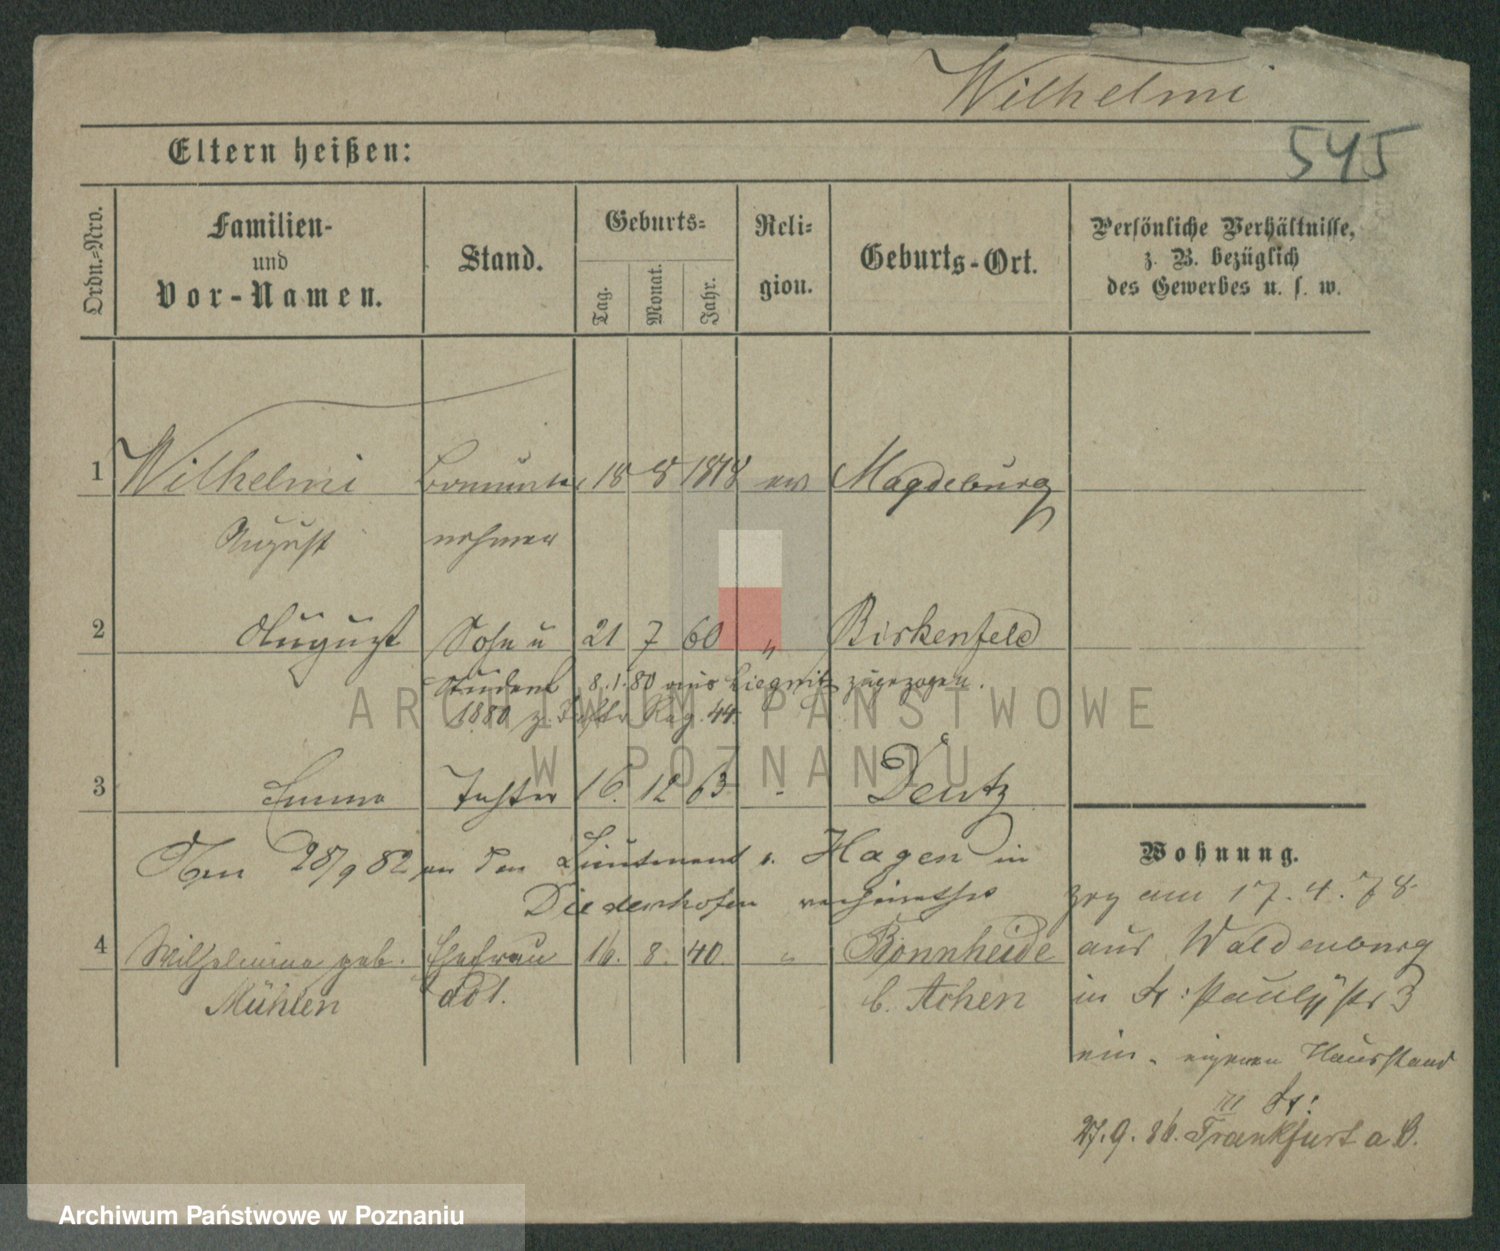 Wilhelmi
545
Eltern heißen:
Ordn.-Nro.
Familien-
und
Vor-Namen.
Stand.
Geburts-
Tag.
Monat.
Jahr.
Reli-
gion.
Geburts-Ort.
Persönliche Verhältnisse,
z. B. bezüglich
des Gewerbes u. s. w.
1 Wilhelmi 18 8 ev Magdeburg
August nehmer
2 August Sohn u 21 7 60 " Birkenfeld
Student 8.1.80 aus Liegnitz zugezogen.
1880 z. Reg. 44
3 Emma Tochter 16. 12 63 Deutz
Den 28/9 82 an den Lieutenant v. Hagen in
Diedenhofen verheirathet
4 Wilhelmine geb. Ehefrau 16. 8. 40 " Bonnheide
Mühlen b. Achen
Wohnung.
zog am 17.4.78
aus Waldenburg
in Paulistr 3
ein. eigenen Hausstand
27.9.86. Frankfurt a O.
ARCHIWUM PAŃSTWOWE
W POZNANIU
Archiwum Państwowe w Poznaniu